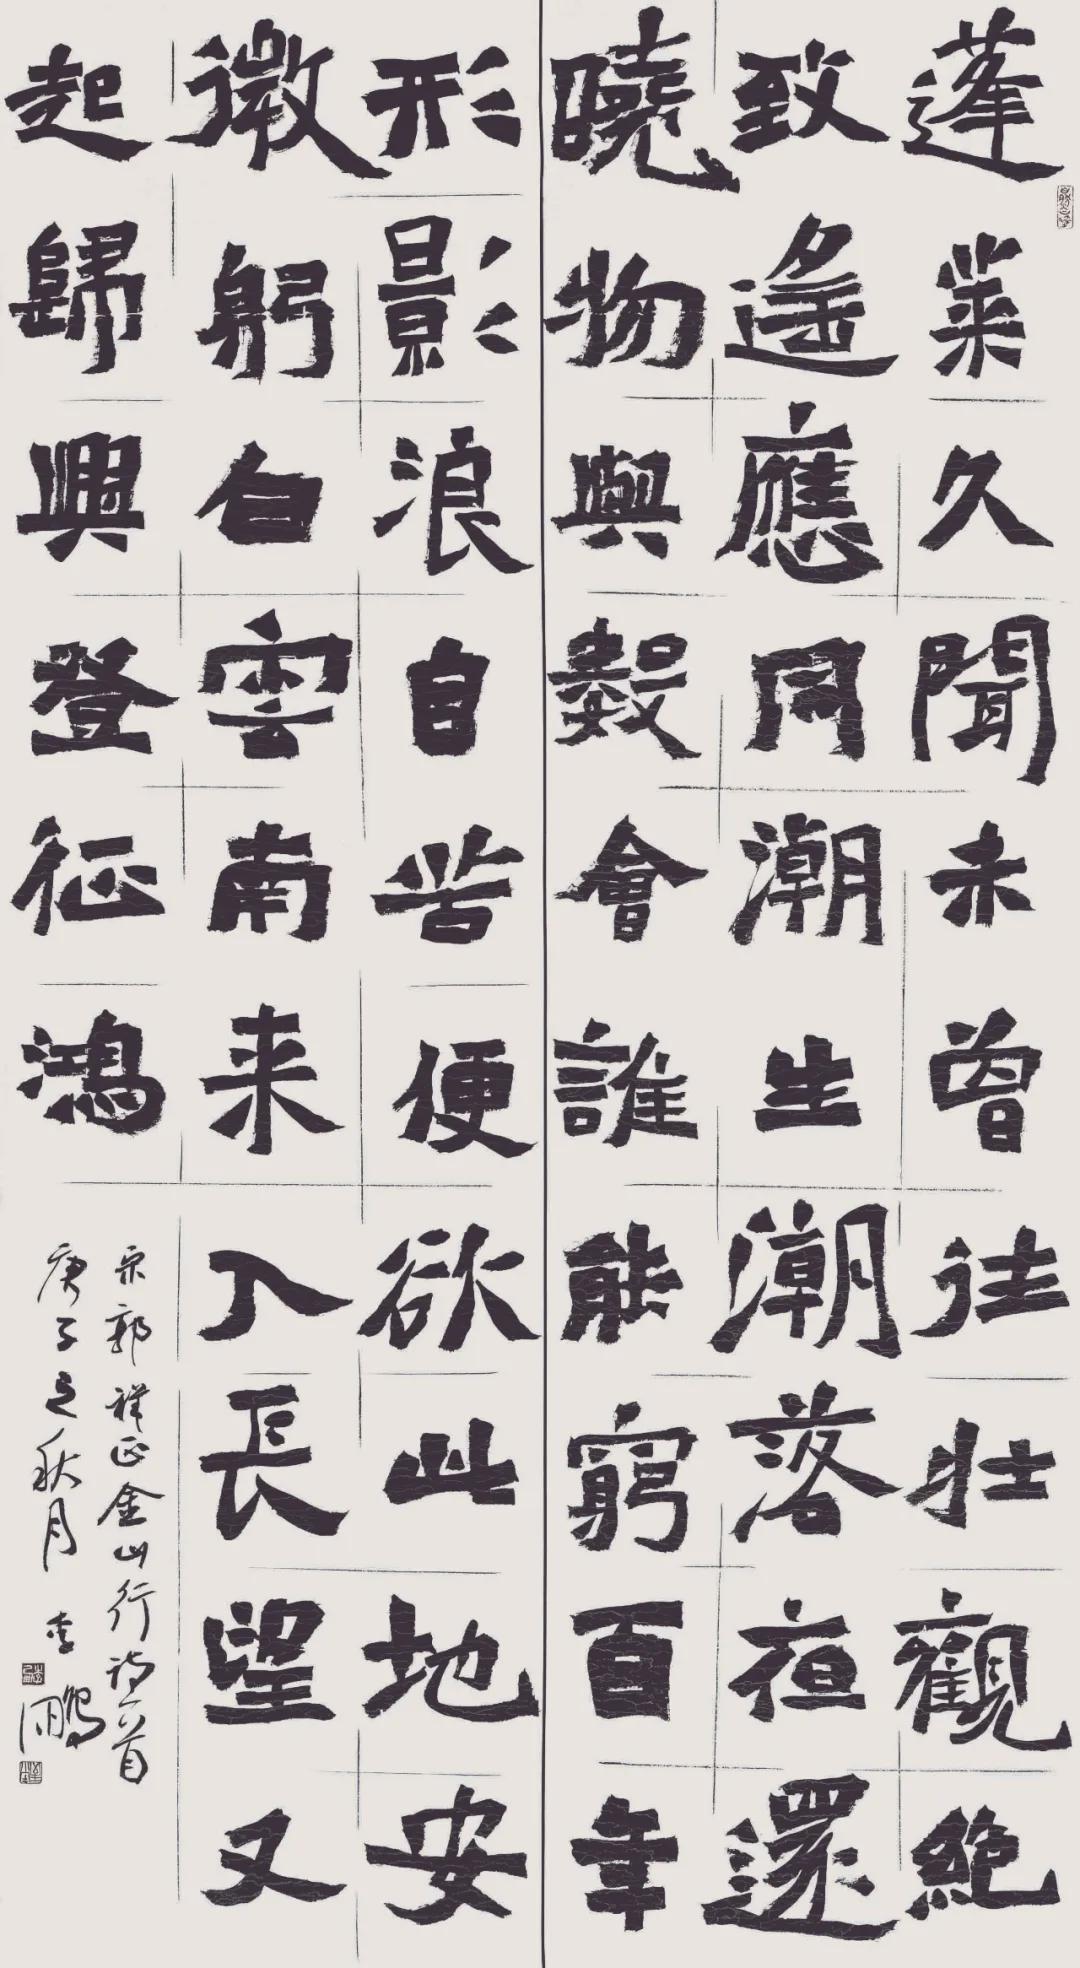 蓬萊久聞未曾往壯觀絕
致遙應同潮生潮落夜還
曉物與數會誰能窮百年
形影浪自苦便欲此地安
微躬白雲南来入長望又
起歸興登征鴻
宋郭祥正金山行詩一首
庚子之秋月 李鵬